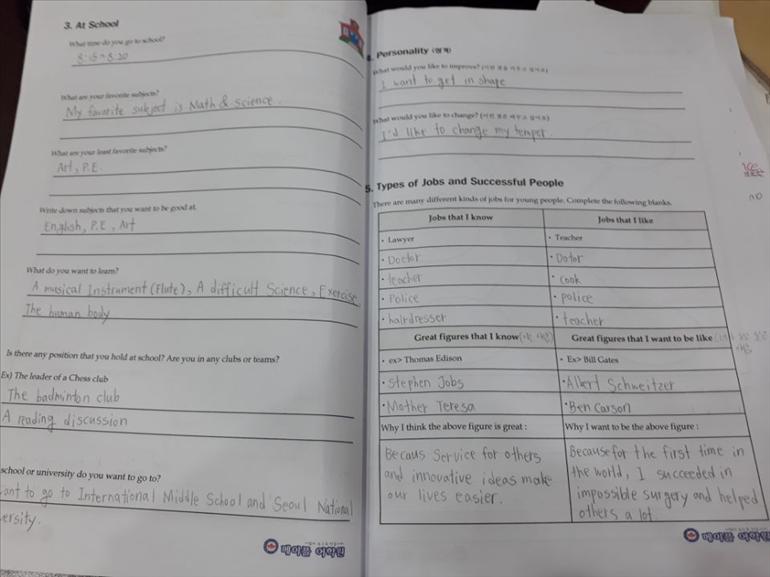 3. At School
What time do you go to school?
My favorite subject is Math & science.
What are your favorite subjects?
What are your least favorite subjects?
Art, P.E.
Write down subjects that you want to be good at.
English, P.E, Art
What do you want to learn?
A musical Instrument (Flute), A difficult Science, Exercise
The human body
Is there any position that you hold at school? Are you in any clubs or teams?
Ex) The leader of a Chess club
The badminton club
A reading discussion
school or university do you want to go to?
ant to go to International Middle School and Seoul National
ersity.
메이플 어학원
Personality (성격)
What would you like to improve?
I want to get in shape
What would you like to change?
I'd like to change my temper
5. Types of Jobs and Successful People
There are many different kinds of jobs for young people. Complete the following blanks.
Jobs that I know
Jobs that I like
• Lawyer
• Teacher
• Doctor
• Dotor
• teacher
• cook
• Police
• police
• hairdresser
• teacher
Great figures that I know
Great figures that I want to be like
• ex> Thomas Edison
• Ex> Bill Gates
• Stephen Jobs
• Albert Schweitzer
• Mother Teresa
• Ben Carson
Why I think the above figure is great :
Why I want to be the above figure :
Becaus Service for others
and innovative ideas make
our lives easier.
Because for the first time in
the world, I succeeded in
impossible surgery and helped
others a lot
메이플 어학원